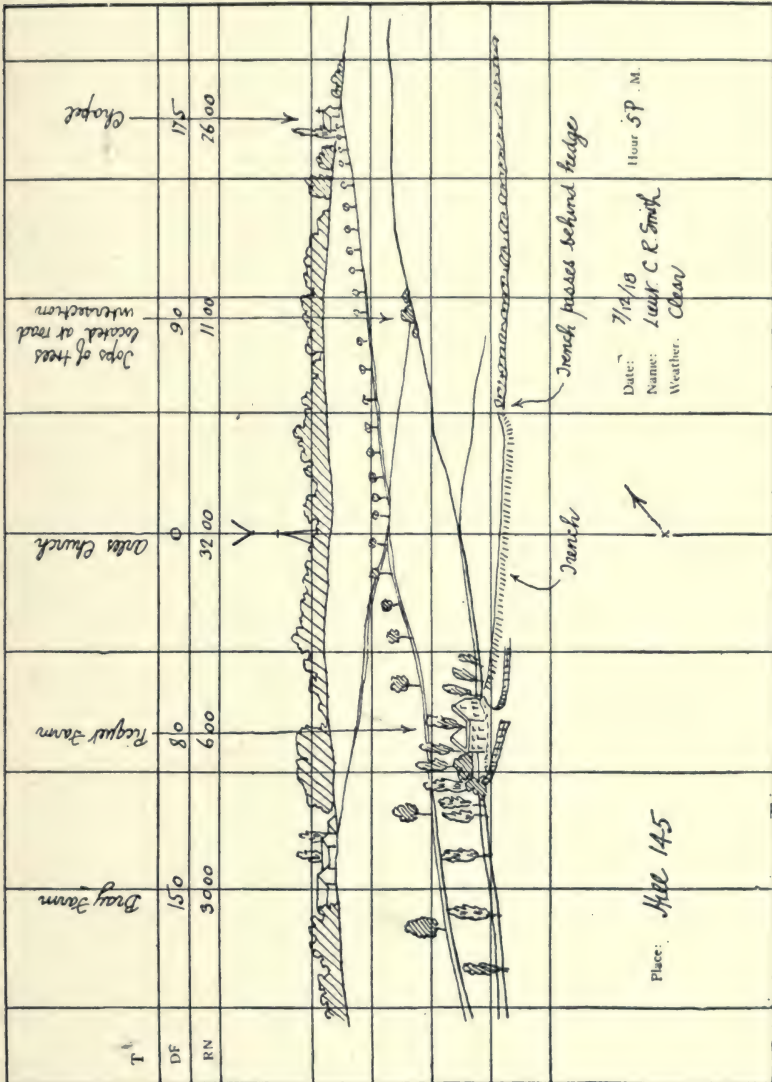 T
Bray Farm
Farm
Arles Church
Tops of trees
located at road
intersection
Chapel
DF 150 80 0 90 175
RN 3000 600 3200 1100 2600
Trench
Trench passes behind hedge
Place: Hill 145
Date: 7/12/18 Hour 5P .M.
Name: Lieut C R Smith
Weather. Clear